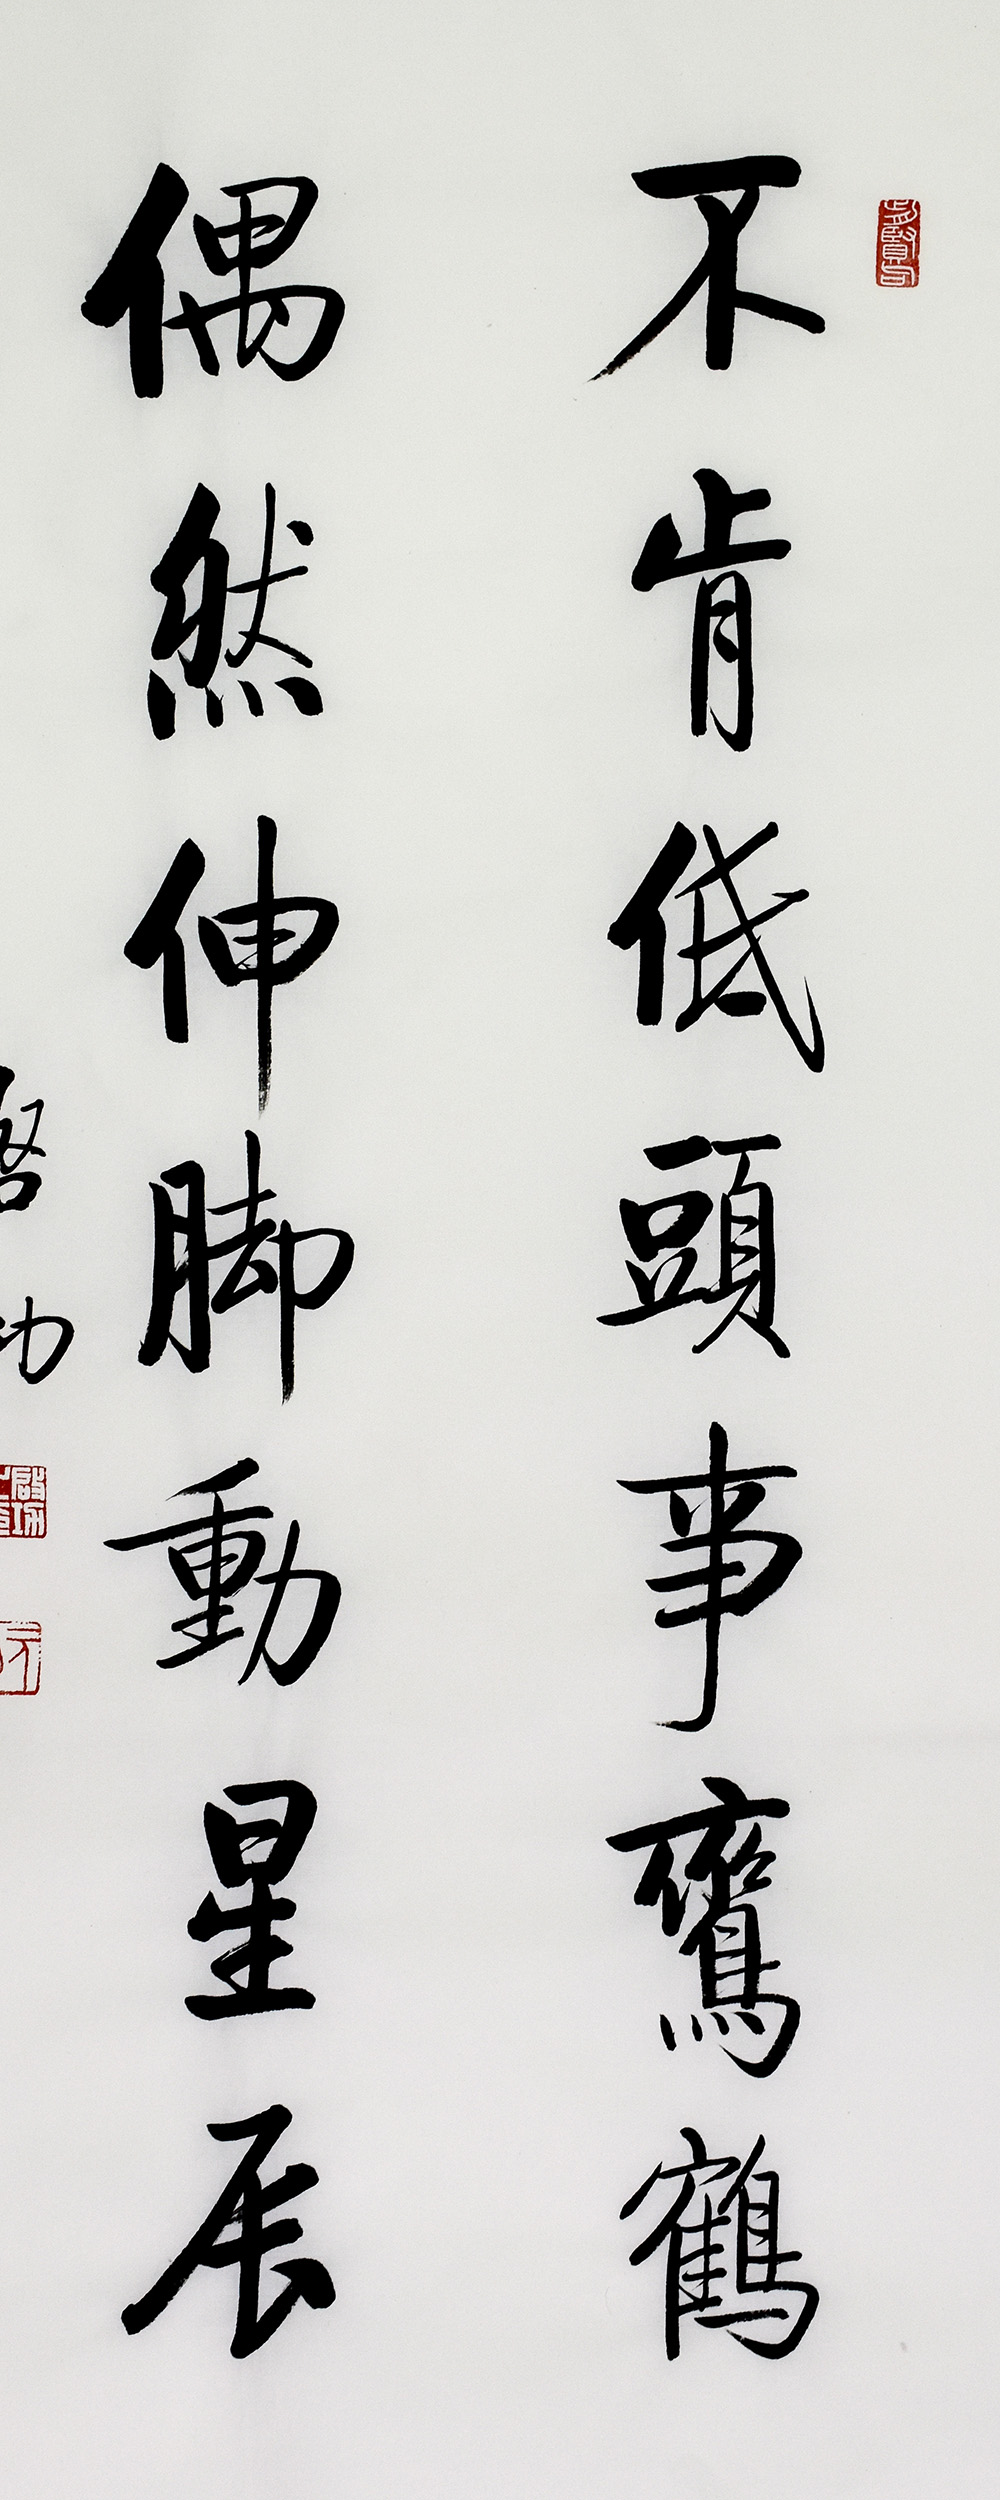 不肯低頭事鸞鶴
偶然伸脚動星辰